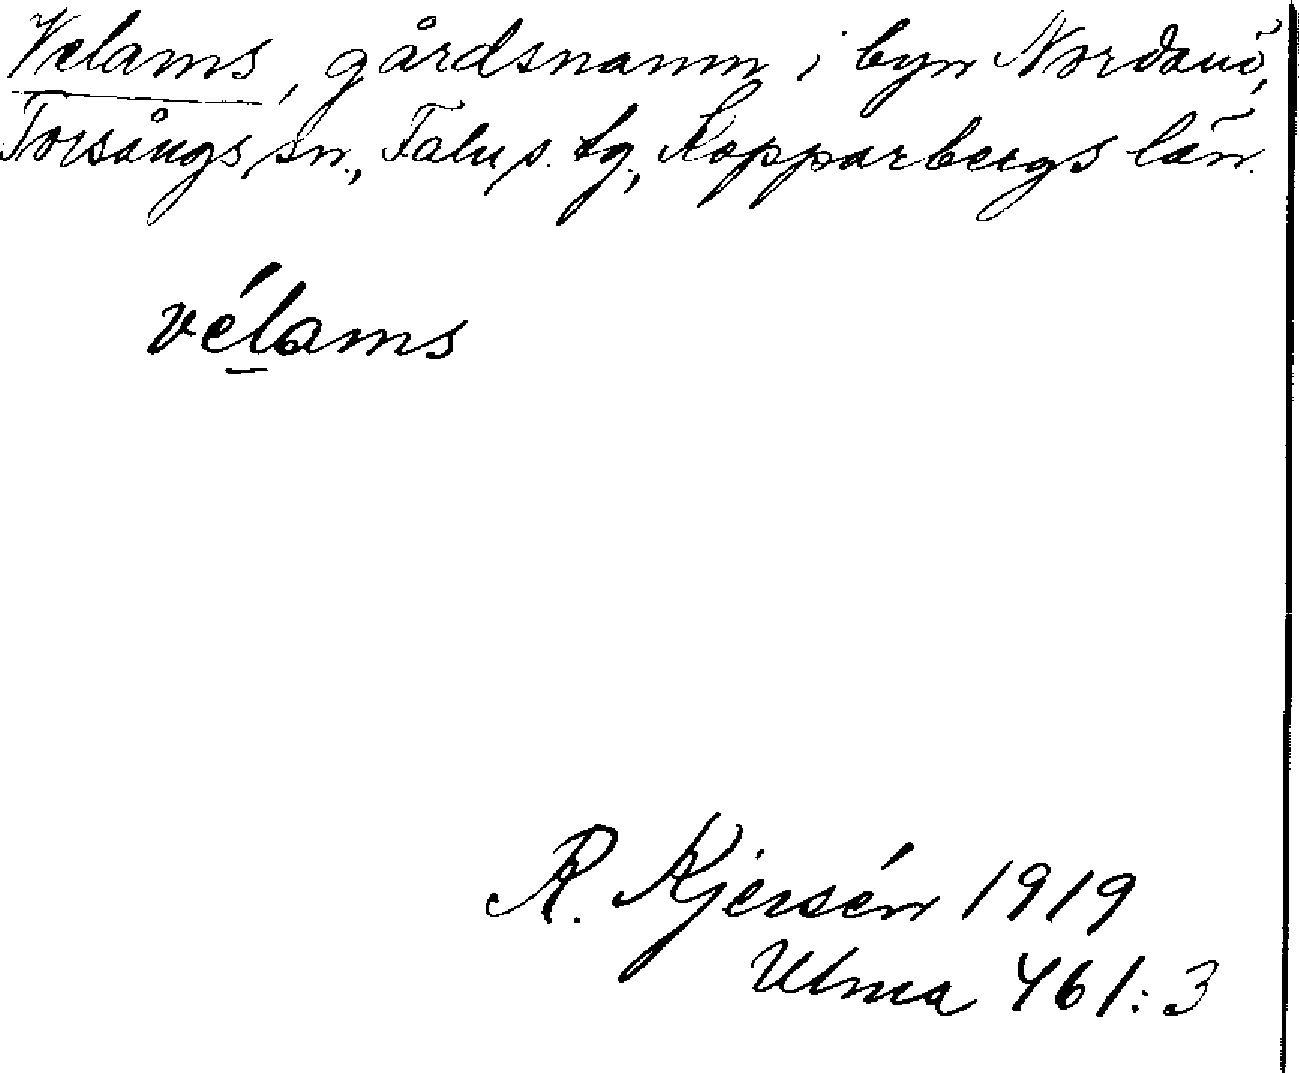 Velams, gårdsnamn i byn Nordanö,
Torsångs sn., Falu s. tg., Kopparbergs län.
vélams
R. Kjersén 1919
Ulma 461:3